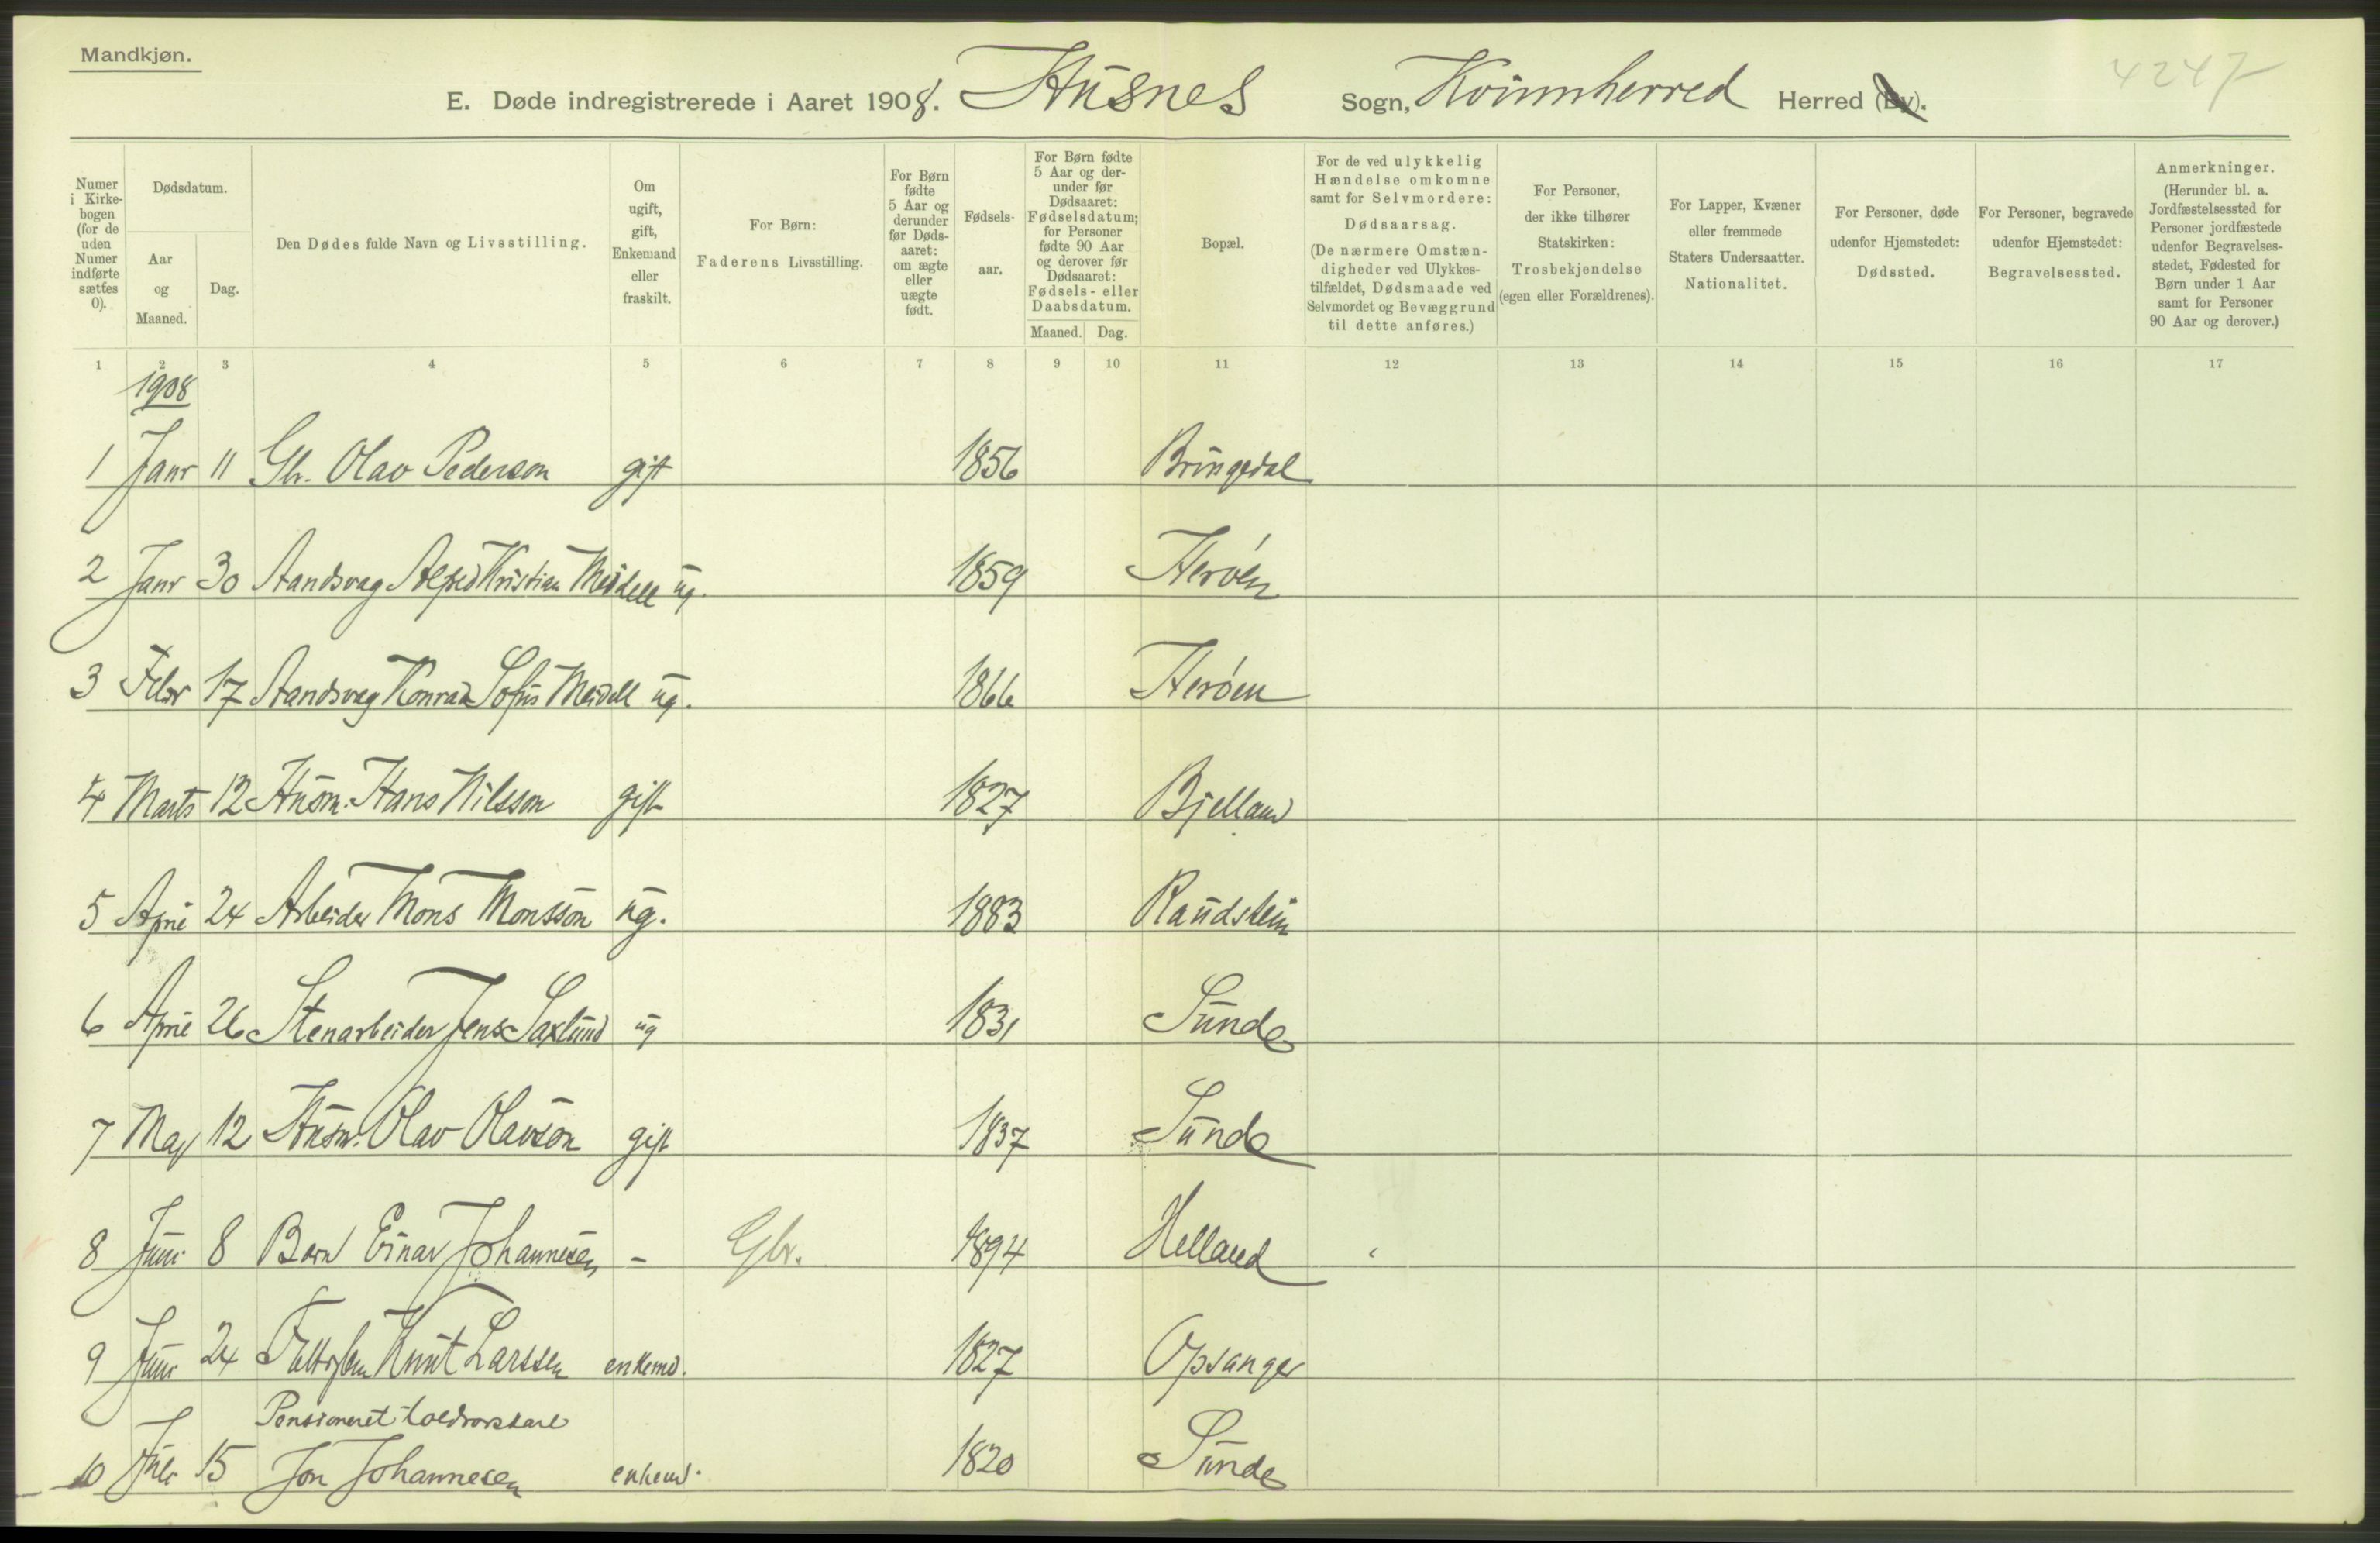 Mandkjøn.
4247
E. Døde indregistrerede i Aaret 1908. Husnes Sogn, Kvinnherred Herred (By).
Numer i Kirkebogen (for de uden Numer indførte sættes 0).
Dødsdatum.
Aar og Maaned.
Dag.
Den Dødes fulde Navn og Livsstilling.
Om ugift, gift, Enkemand eller fraskilt.
For Børn: Faderens Livsstilling.
For Børn fødte 5 Aar og derunder før Dødsaaret: om ægte eller uægte født.
Fødselsaar.
For Børn fødte 5 Aar og derunder før Dødsaaret: Fødselsdatum; for Personer fødte 90 Aar og derover før Dødsaaret: Fødsels- eller Daabsdatum.
Maaned. Dag.
Bopæl.
For de ved ulykkelig Hændelse omkomne samt for Selvmordere: Dødsaarsag. (De nærmere Omstændigheder ved Ulykkestilfældet, Dødsmaade ved Selvmordet og Bevæggrund til dette anføres.)
For Personer, der ikke tilhører Statskirken: Trosbekjendelse (egen eller Forældrenes).
For Lapper, Kvæner eller fremmede Staters Undersaatter. Nationalitet.
For Personer, døde udenfor Hjemstedet: Dødssted.
For Personer, begravede udenfor Hjemstedet: Begravelsessted.
Anmerkninger. (Herunder bl. a. Jordfæstelsessted for Personer jordfæstede udenfor Begravelsesstedet, Fødested for Børn under 1 Aar samt for Personer 90 Aar og derover.)
1 2 3 4 5 6 7 8 9 10 11 12 13 14 15 16 17
1908
1 Janr 11 Gbr. Olav Pederson gift 1856 Bringedal
2 Janr 30 Aandsvag Alfred Kristian Meidell ug. 1859 Herøen
3 Febr 17 Aandsvag Konrad Sofus Meidell ug. 1866 Herøen
4 Marts 12 Husm. Hans Nilsson gift 1827 Bjelland
5 April 24 Arbeider Mons Monsson ug. 1883 Raudstein
6 April 26 Stenarbeider Jens Saxlund ug 1831 Sunde
7 May 12 Husm. Olav Olavson gift 1837 Sunde
8 Juni 8 Barn Einar Johannesen - Gbr. 1894 Helland
9 Juni 24 Knut Larssen enkemd. 1827 Opsanger
Pensioneret toldrorskarl
10 Juli 15 Jon Johannesen enkemd. 1820 Sunde